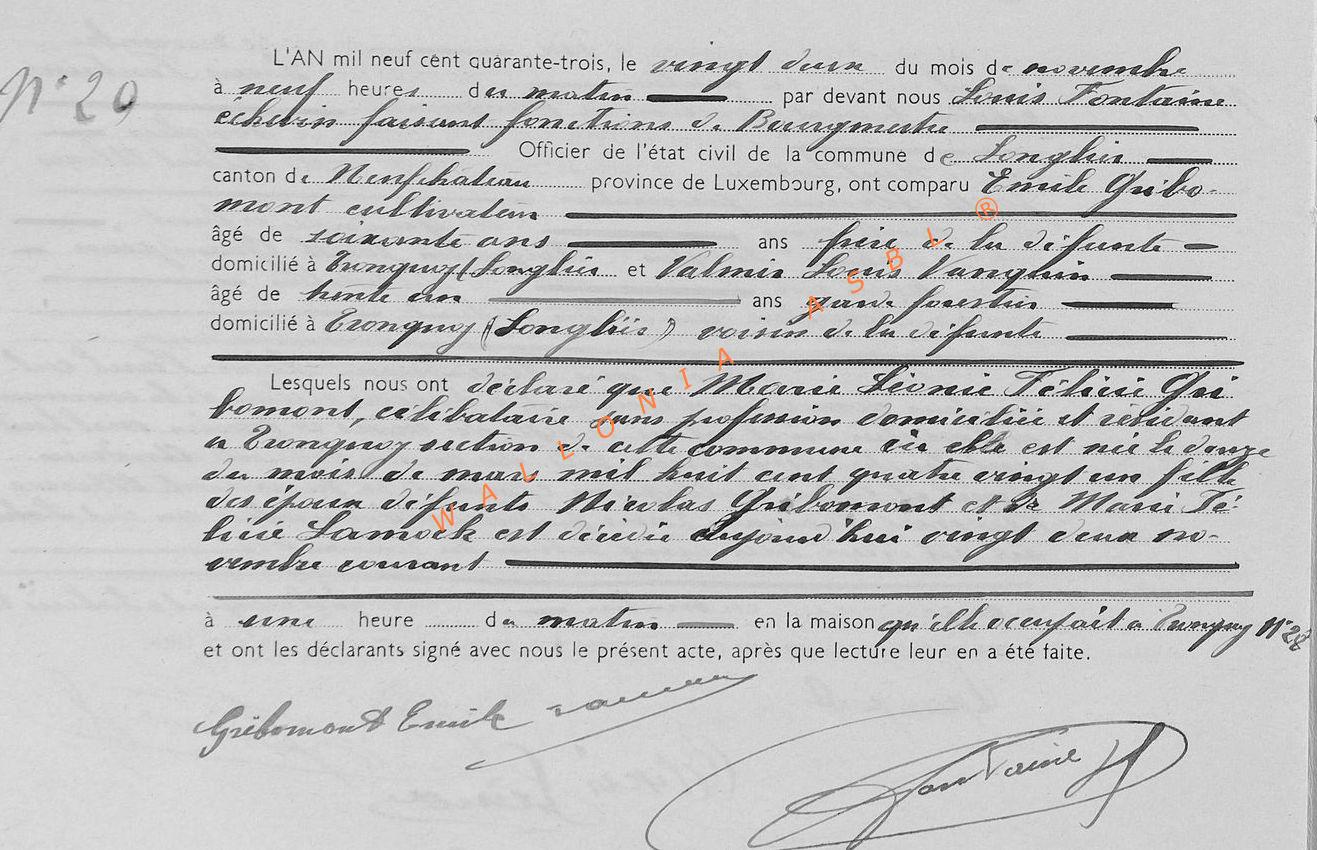 N° 20
L'AN mil neuf cent quarante-trois, le vingt deux du mois de novembre
à neuf heures du matin par devant nous Louis Fontaine
échevin faisant fonctions de Bourgmestre
Officier de l'état civil de la commune de Longlier
canton de Neufchateau province de Luxembourg, ont comparu Emile Gribo-
mont cultivateur
âgé de soixante ans ans frère de la défunte
domicilié à Tronquoy (Longlier et Valmir Louis
âgé de trente un ans garde forestier
domicilié à Tronquoy (Longlier) voisin de la défunte
Lesquels nous ont déclaré que Marie Léonie Félicie Gri
bomont, célibataire sans profession domiciliée et résidant
à Tronquoy section de cette commune où elle est née le douze
du mois de mars mil huit cent quatre vingt un fille
des époux défunts Nicolas Gribomont et de Marie Fé-
licie Lamock est décédée aujourd'hui vingt deux no-
vembre courant
à une heure du matin en la maison qu'elle occupait à Tronquoy N° 28
et ont les déclarants signé avec nous le présent acte, après que lecture leur en a été faite.
Gribomont Emile
Fontaine
WALLONIA ASBL ®